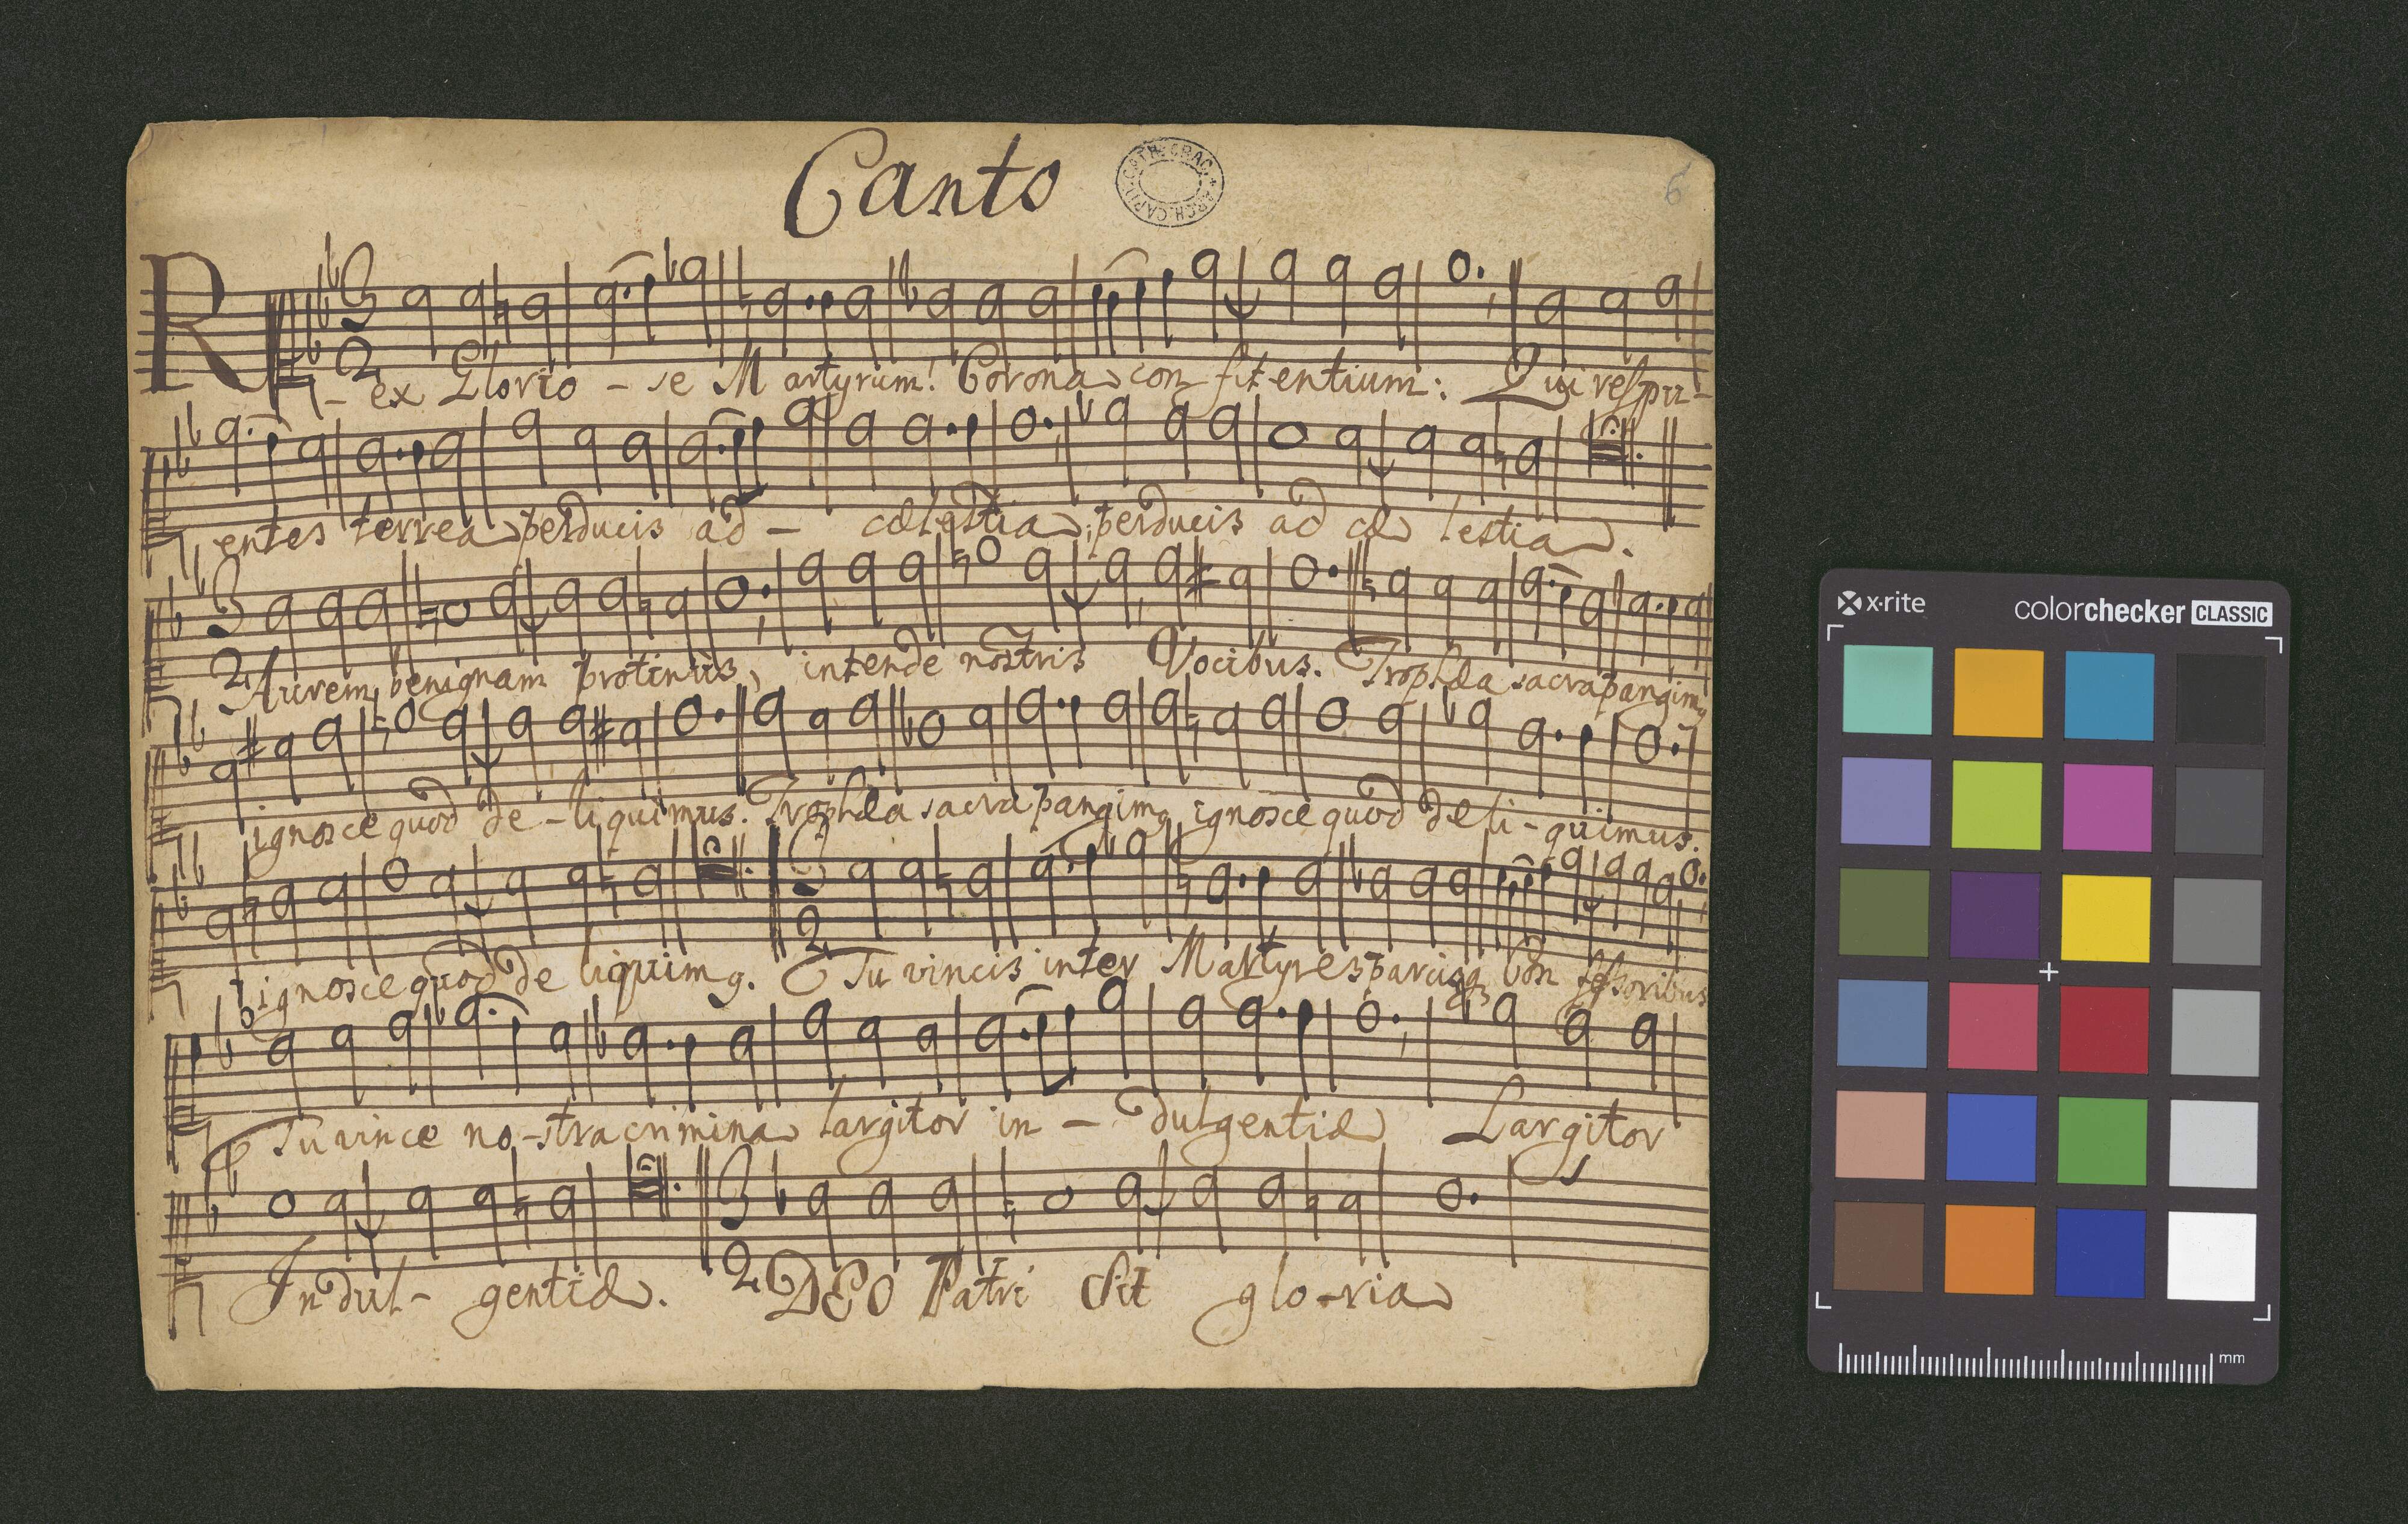 Canto
ARCH. CAPIT. CATH. CRAC.
6
R - ex Glorio - se Martyrum! Corona con fitentium: Qui respu-
entes terrea perducis ad - cælestia, perducis ad cæ lestia.
3 2 Aurem benignam protinùs, intende nostris Vocibus. Trophæa sacra pangimq
ignosce quod de - liquimus. Trophæa sacra pangimq ignosce quod deli - quimus.
ignosce quod de liquimq. Tu vincis inter Martyres parcisq Con fessoribus
Tu vince no - stra crimina largitor in - dulgentiæ Largitor
Indul - gentiæ. 3 2 DEO Patri sit glo - ria
x-rite
colorchecker CLASSIC
mm